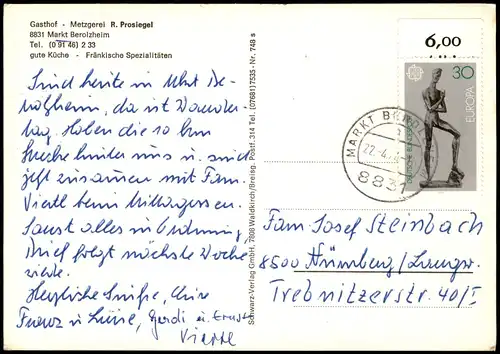 Gasthof - Metzgerei R. Prosiegel
8831 Markt Berolzheim
Tel. (0 91 46) 2 33
gute Küche - Fränkische Spezialitäten
Sind heute in Mkt Be-
rolzheim, da ist Wander-
tag. Haben die 10 km
Strecke hinter uns u. sind
jetzt zusammen mit Fam.
Viertl beim Mittagessen.
Sonst alles in Ordnung.
Brief folgt nächste Woche
Herzliche Grüße, Eure
Franz u. Gerdi u. Ernst
Viertl
Schwarz-Verlag GmbH, 7808 Waldkirch/Breisg. Postf. 314 Tel. (07681) 7535 · Nr. 748 s
6,00
30
EUROPA
CEPT
MARKT BERO
22.-4.
8831
Fam. Josef Steinbach
8500 Nürnberg/Langw.
Trebnitzerstr. 40/I